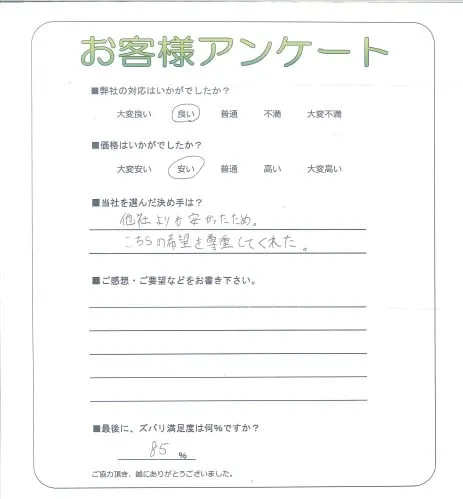 お客様アンケート
■弊社の対応はいかがでしたか?
大変良い 良い 普通 不満 大変不満
■価格はいかがでしたか?
大変安い 安い 普通 高い 大変高い
■当社を選んだ決め手は?
他社よりか安かったため。
こちらの希望を尊重してくれた。
■ご感想・ご要望などをお書き下さい。
■最後に、ズバリ満足度は何%ですか?
85 %
ご協力頂き、誠にありがとうございました。